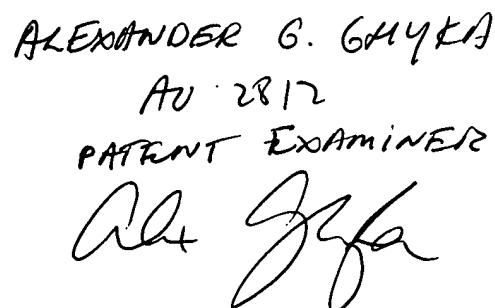 ALEXANDER G. GHYKA
AU 2812
PATENT EXAMINER
Alex Ghyka